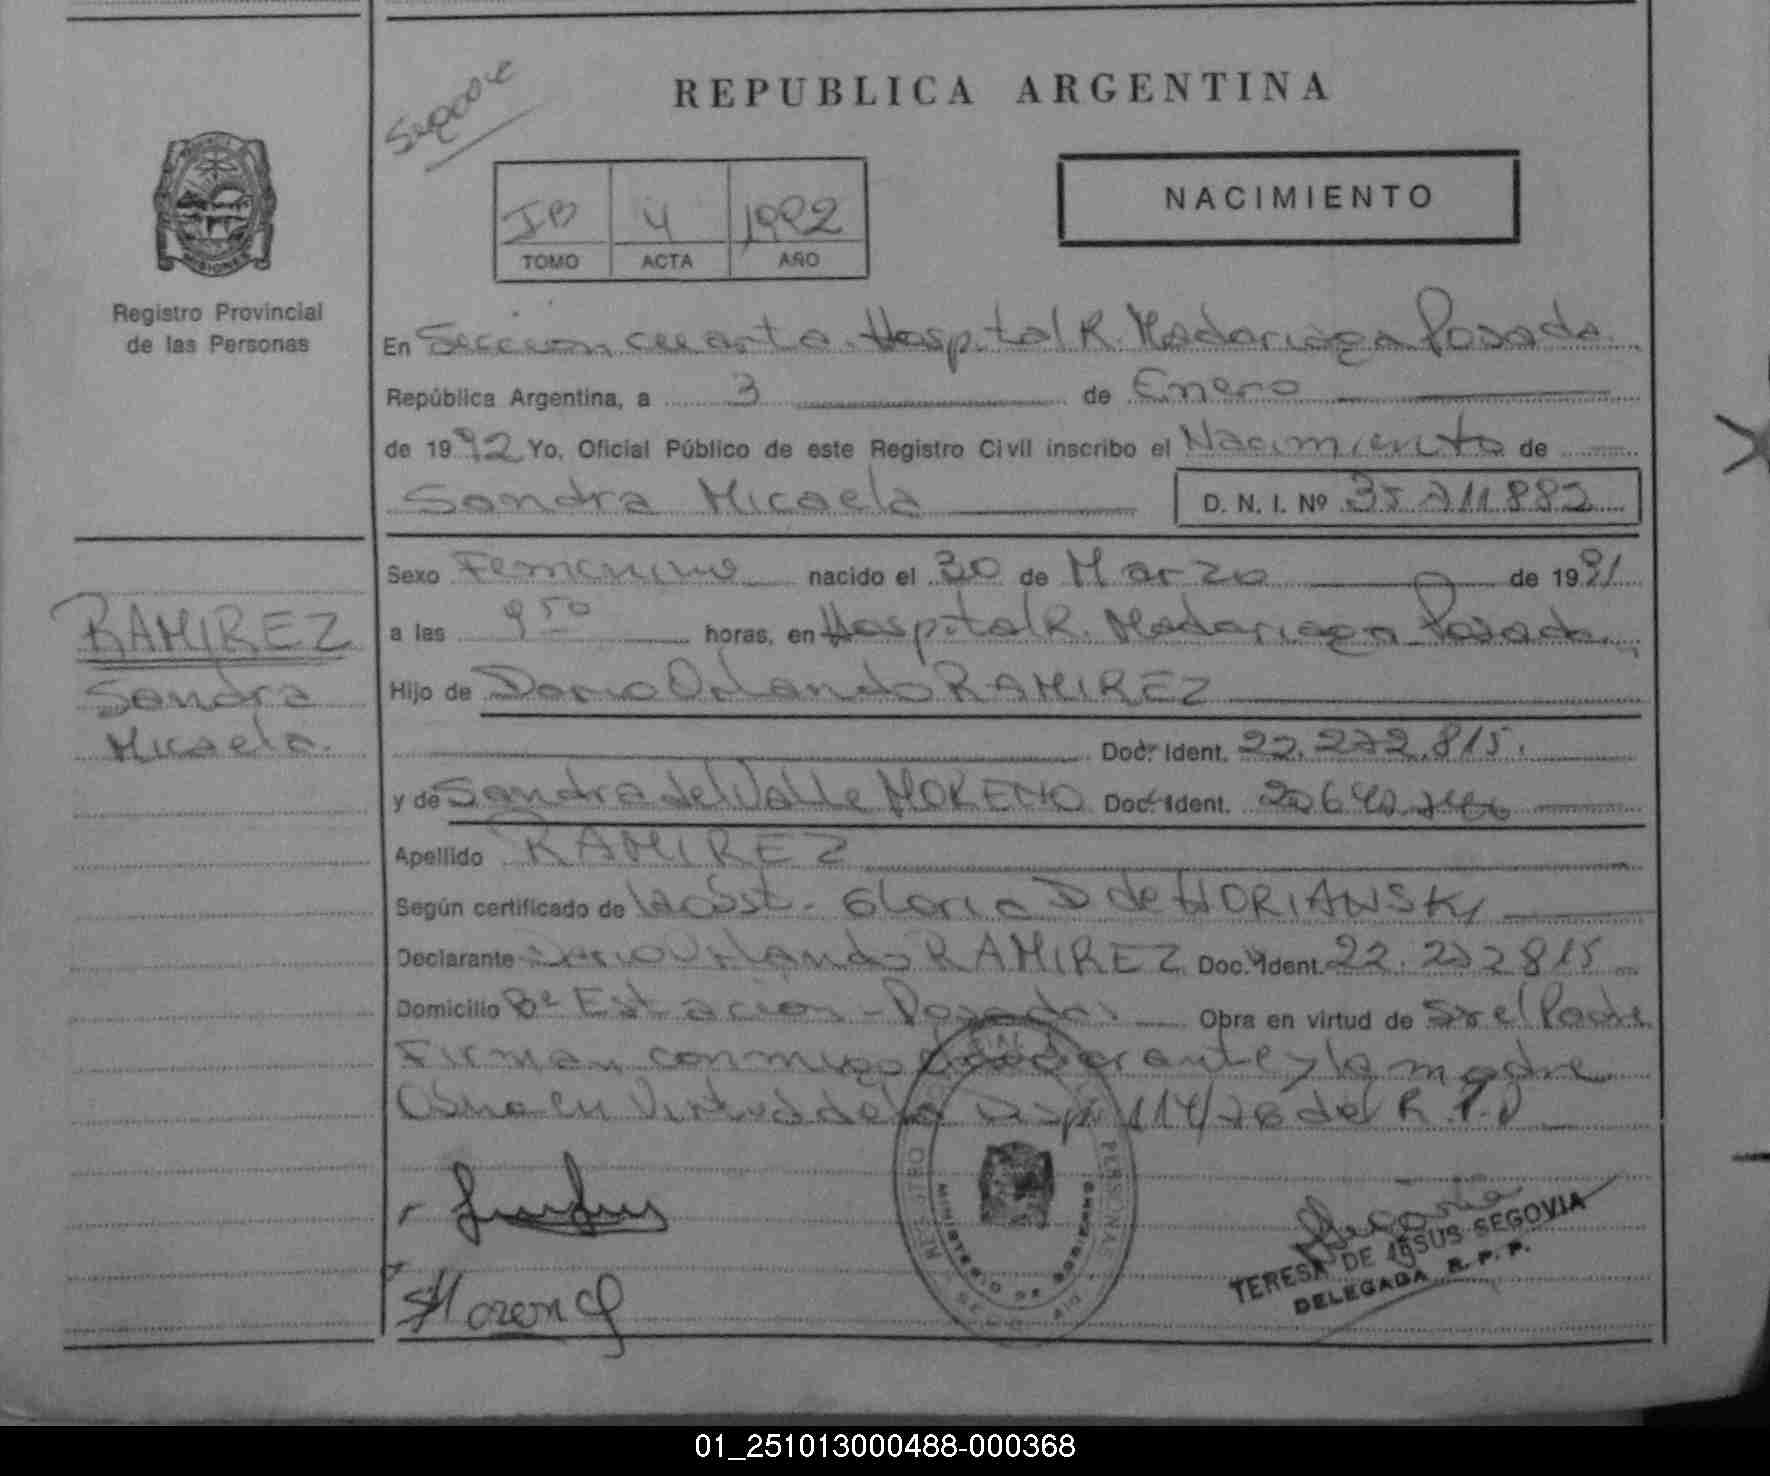 REPUBLICA ARGENTINA
NACIMIENTO
IB 4 1992
TOMO ACTA AÑO
MISIONES
Registro Provincial
de las Personas
En Sección cuarta Hospital R. Madariaga Posadas
República Argentina, a 3 de Enero
de 1992 Yo, Oficial Público de este Registro Civil inscribo el Nacimiento de
Sandra Micaela D. N. I. Nº 35.711.882
Sexo Femenino nacido el 30 de Marzo de 1991
a las 9 50 horas, en Hospital R. Madariaga Posadas
RAMIREZ
Sandra
Micaela
Hijo de Dario Orlando RAMIREZ
Doc. Ident. 22.272.815
y de Sandra del Valle MORENO Doc. Ident.
Apellido RAMIREZ
Según certificado de la Obst. Gloria D de HORIANSKI
Declarante Dario Orlando RAMIREZ Doc. Ident. 22.272815
Domicilio Bº Estacion - Posadas Obra en virtud de Ser el Padre
Firman conmigo el declarante y la madre
Obra en Virtud de la Disp. 114/78 del R.P.P
PERSONAS
MINISTERIO DE GOBIERNO
Moreno
TERESA DE JESUS SEGOVIA
DELEGADA R. P. P.
01_251013000488-000368